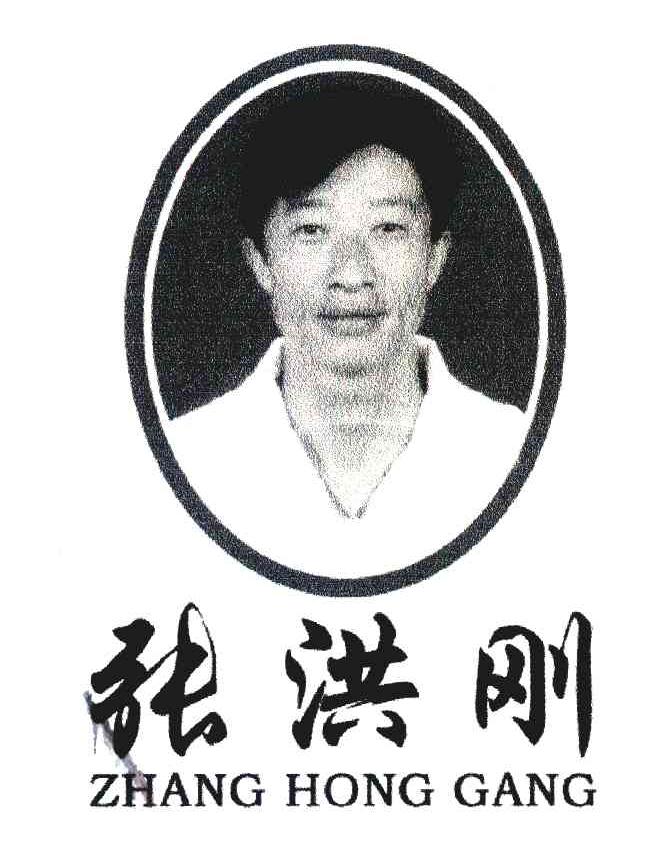 张洪刚
ZHANG HONG GANG